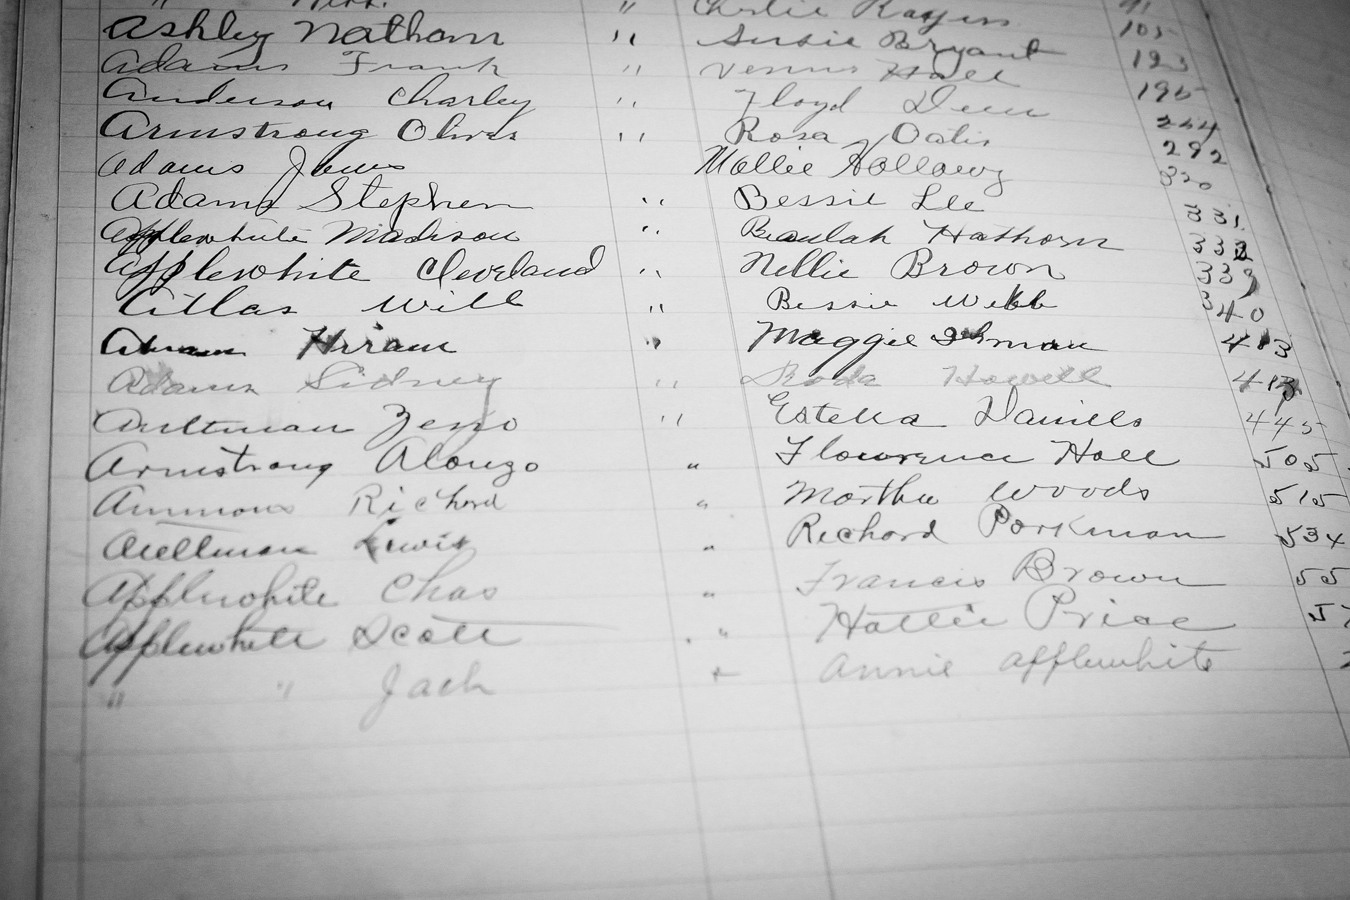 " " "
Ashley Nathan " Susie Bryant 105
Adams Frank " Venus Hall 123
Anderson Charley " Floyd Dunn 195
Armstrong Oliver " Rosa Oatis 244
Adams James Mollie Holloway 320
Adams Stephen " Bessie Lee 331
Applewhite Madison " Beaulah Hathorn 332
Applewhite Cleveland " Nellie Brown 339
Atlas Will " Bessie Webb 340
Abram Hiram " Maggie 413
Adams Sidney " Howell
Aultman Zeno " Estella Daniels 445
Armstrong Alonzo " Flowrence Hall 505
Ammons Richard " Martha Woods 515
Aultman Lewis " Richard Porkman 534
Applewhite Chas " Francis Brown 55
Applewhite Scott " Hattie Price 57
" " Jack + Annie Applewhite